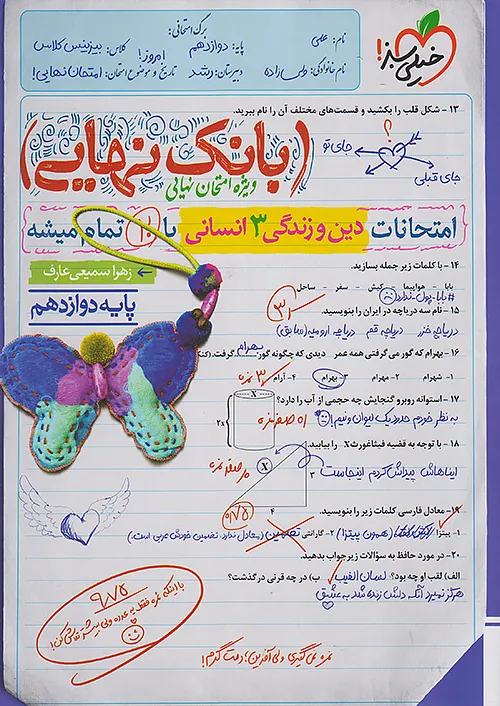 خیلی سبز!
برگ امتحانی:
نام: علی
پایه: دوازدهم
کلاس: بیزینس کلاس
نام خانوادگی: ولی زاده
دبیرستان: رشد
امروز!
تاریخ و موضوع امتحان: امتحان نهایی!
۱۳ - شکل قلب را بکشید و قسمت‌های مختلف آن را نام ببرید.
؟
جای تو
جای قبلی
(بانک نهایی)
ویژه امتحان نهایی
امتحانات دین و زندگی ۳ انسانی با ۲۰ تمام میشه
زهرا سمیعی عارف
پایه دوازدهم
۱۴ - با کلمات زیر جمله بسازید.
بابا - هواپیما - کیش - سفر - ساحل
#بابا_پول_ندارد
۱۵ - نام سه دریاچه در ایران را بنویسید.
دریاچه خزر دریاچه قم دریاچه ارومیه (سابق)
۱۶ - بهرام که گور می گرفتی همه عمر دیدی که چگونه گور بهرام گرفت.
۱- شهرام ۲- مهرام ۳- بهرام ۴- آرام
۱۷ - استوانه روبرو گنجایش چه حجمی از آب را دارد؟
به نظر خودم حدود یک لیوان و نیم!
X
2x
۱۸ - با توجه به قضیه فیثاغورث X را بیابید.
ایناهاش پیداش کردم اینجاست
X
۳
۴
۱۹- معادل فارسی کلمات زیر را بنویسید.
۱- پیتزا (همون پیتزا) ۲- گارانتی تضمین (معادل ندارد. تضمین خودش عربی است.)
۲۰- در مورد حافظ به سؤالات زیر جواب بدهید.
الف) لقب او چه بود؟ لسان الغیب ب) در چه قرنی درگذشت؟
هرگز نمیرد آنکه دلش زنده شد به عشق
۹/۷۵
با اینکه نمره فقط یه عدده ولی بیشتر تلاش کن!
نمره نمی‌گیری ولی آفرین؛ دمت گرم!